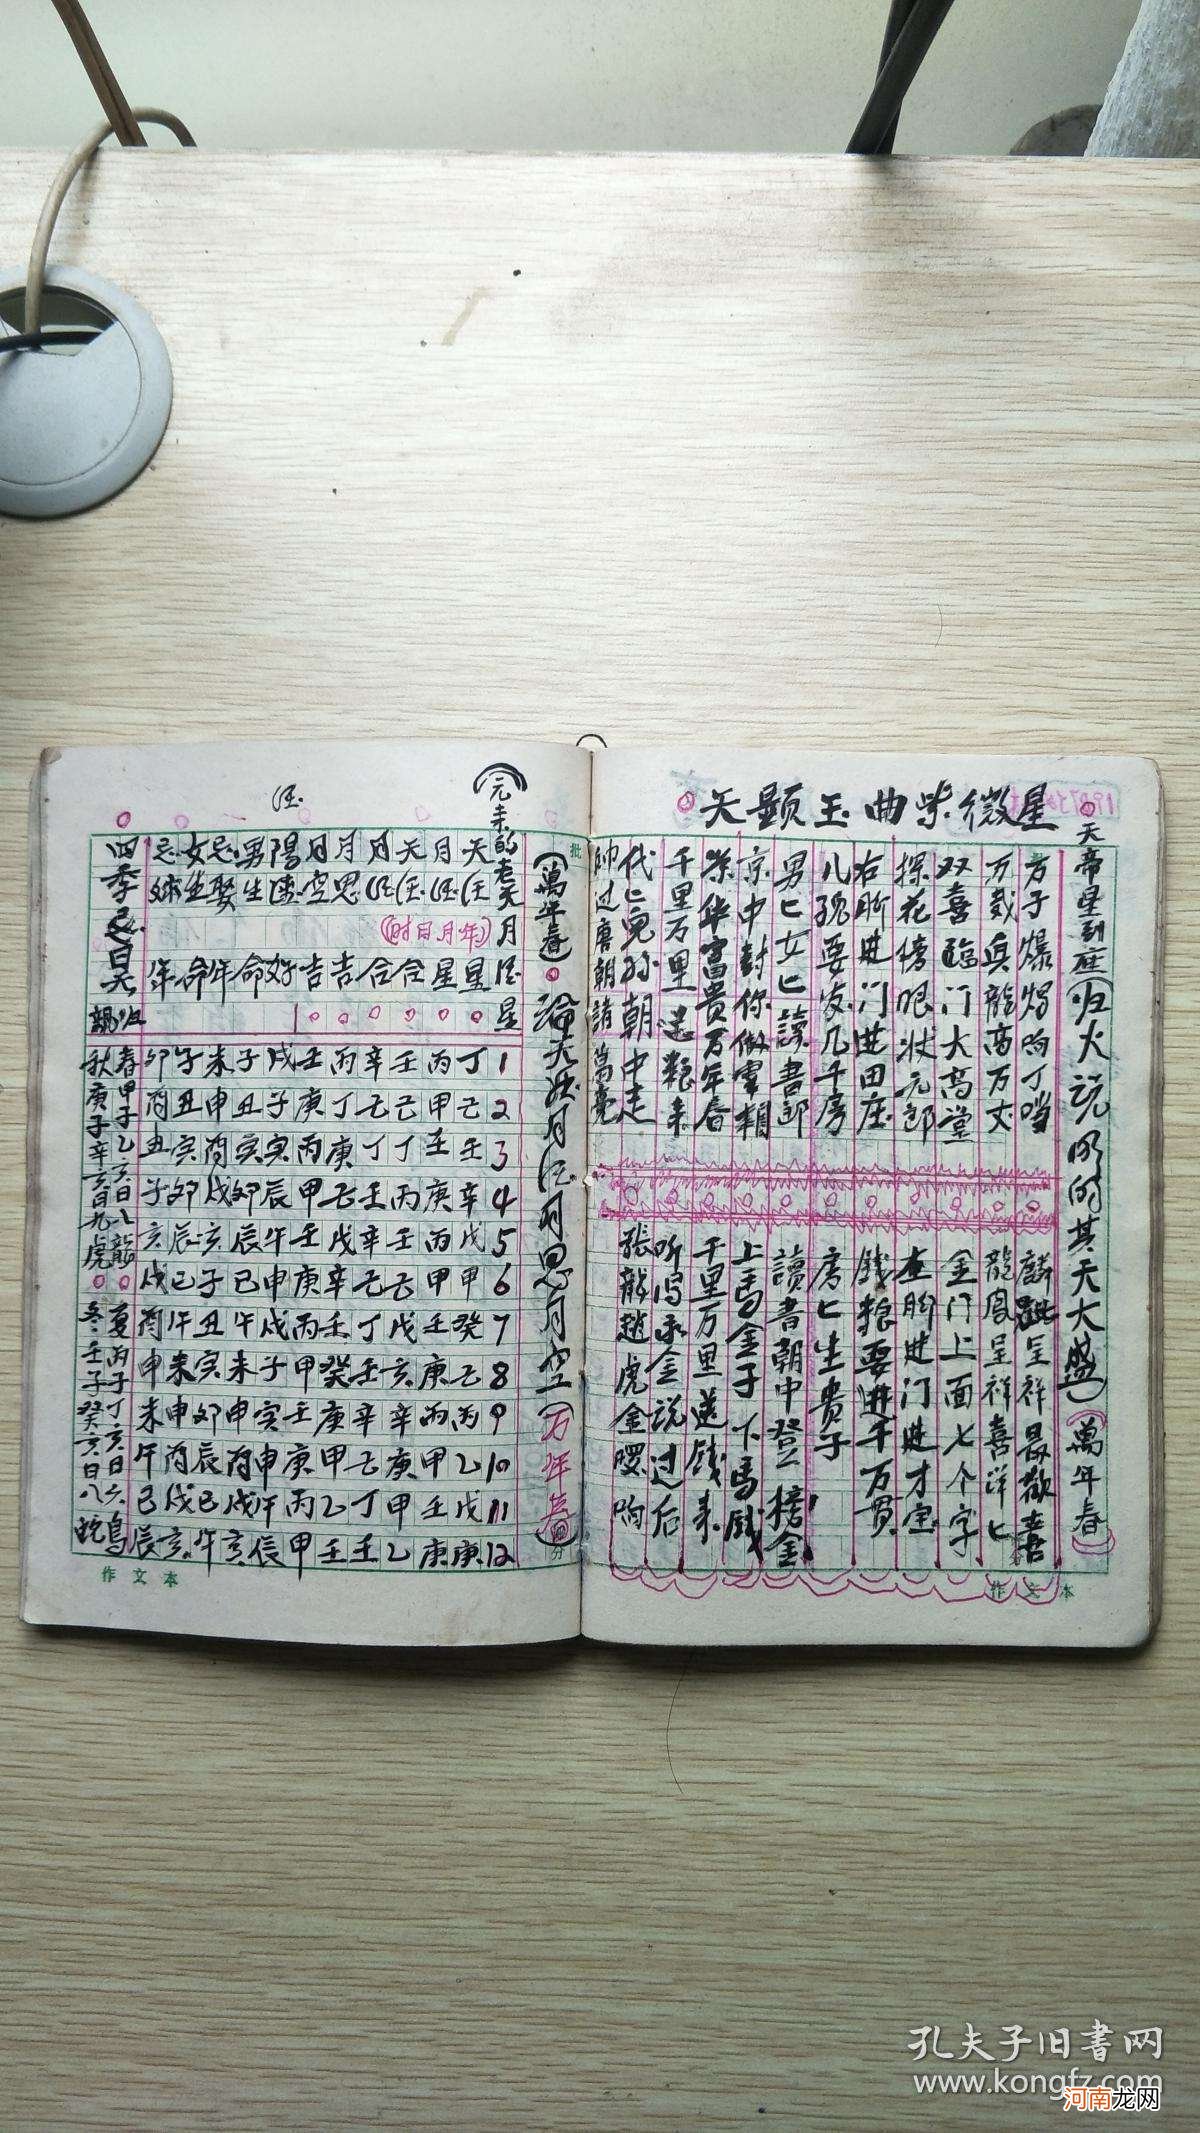 天顕玉曲紫微星
天帝星到座(归火说的的其天大盛)(萬年春)
方子爆焬响丁噹 麟趾呈祥最歡喜
万载兵龍高万丈 龍鳳呈祥喜洋匕
双喜臨门大高堂 金门上面七个字
探花榜眼状元郎 左脚进门进才宝
右脚进门进田庄 钱粮要进千万贯
儿孫要发几千房 房匕生貴子
男匕女匕讀書郎 讀書朝中登榜金
京中封你做宰相 上馬金子下馬銭
荣华富贵万年春 千里万里送銭来
千里万里送粮来 听馮永金说过后
代匕兒孙朝中走 张龍趙虎金喫响
帥过唐朝諸葛亮
(元来的老天月德星
(萬年春)
論天德月德月恩月空(万年春)
批
分
天月天月月月陽男忌女忌
(年月日时)
星星合合吉吉好命年命年
1 丁丙壬辛丙壬戌子未午卯
2 己甲己乙丁庚子丑申丑酉
3 壬壬丁丁庚丙寅寅酉寅丑
4 辛庚丙壬乙甲辰卯戌卯子
5 戊丙壬辛戊壬午辰亥辰亥
6 甲甲乙乙辛庚申巳子巳戌
7 癸壬戊丁壬丙戌午丑午酉
8 乙庚亥壬癸甲子未寅未申
9 丙丙辛辛庚壬寅申卯申未
10 乙甲庚乙甲庚申酉辰酉午
11 戊壬甲丁乙丙午戌巳戌巳
12 庚庚乙壬壬甲辰亥午亥辰
四季忌日
春甲子乙亥日 龍
夏丙子丁亥日六鸟
秋庚子辛亥日九虎
冬壬子癸亥日八蛇
作文本
作文本
孔夫子旧书网
www.kongfz.com
河南龙网